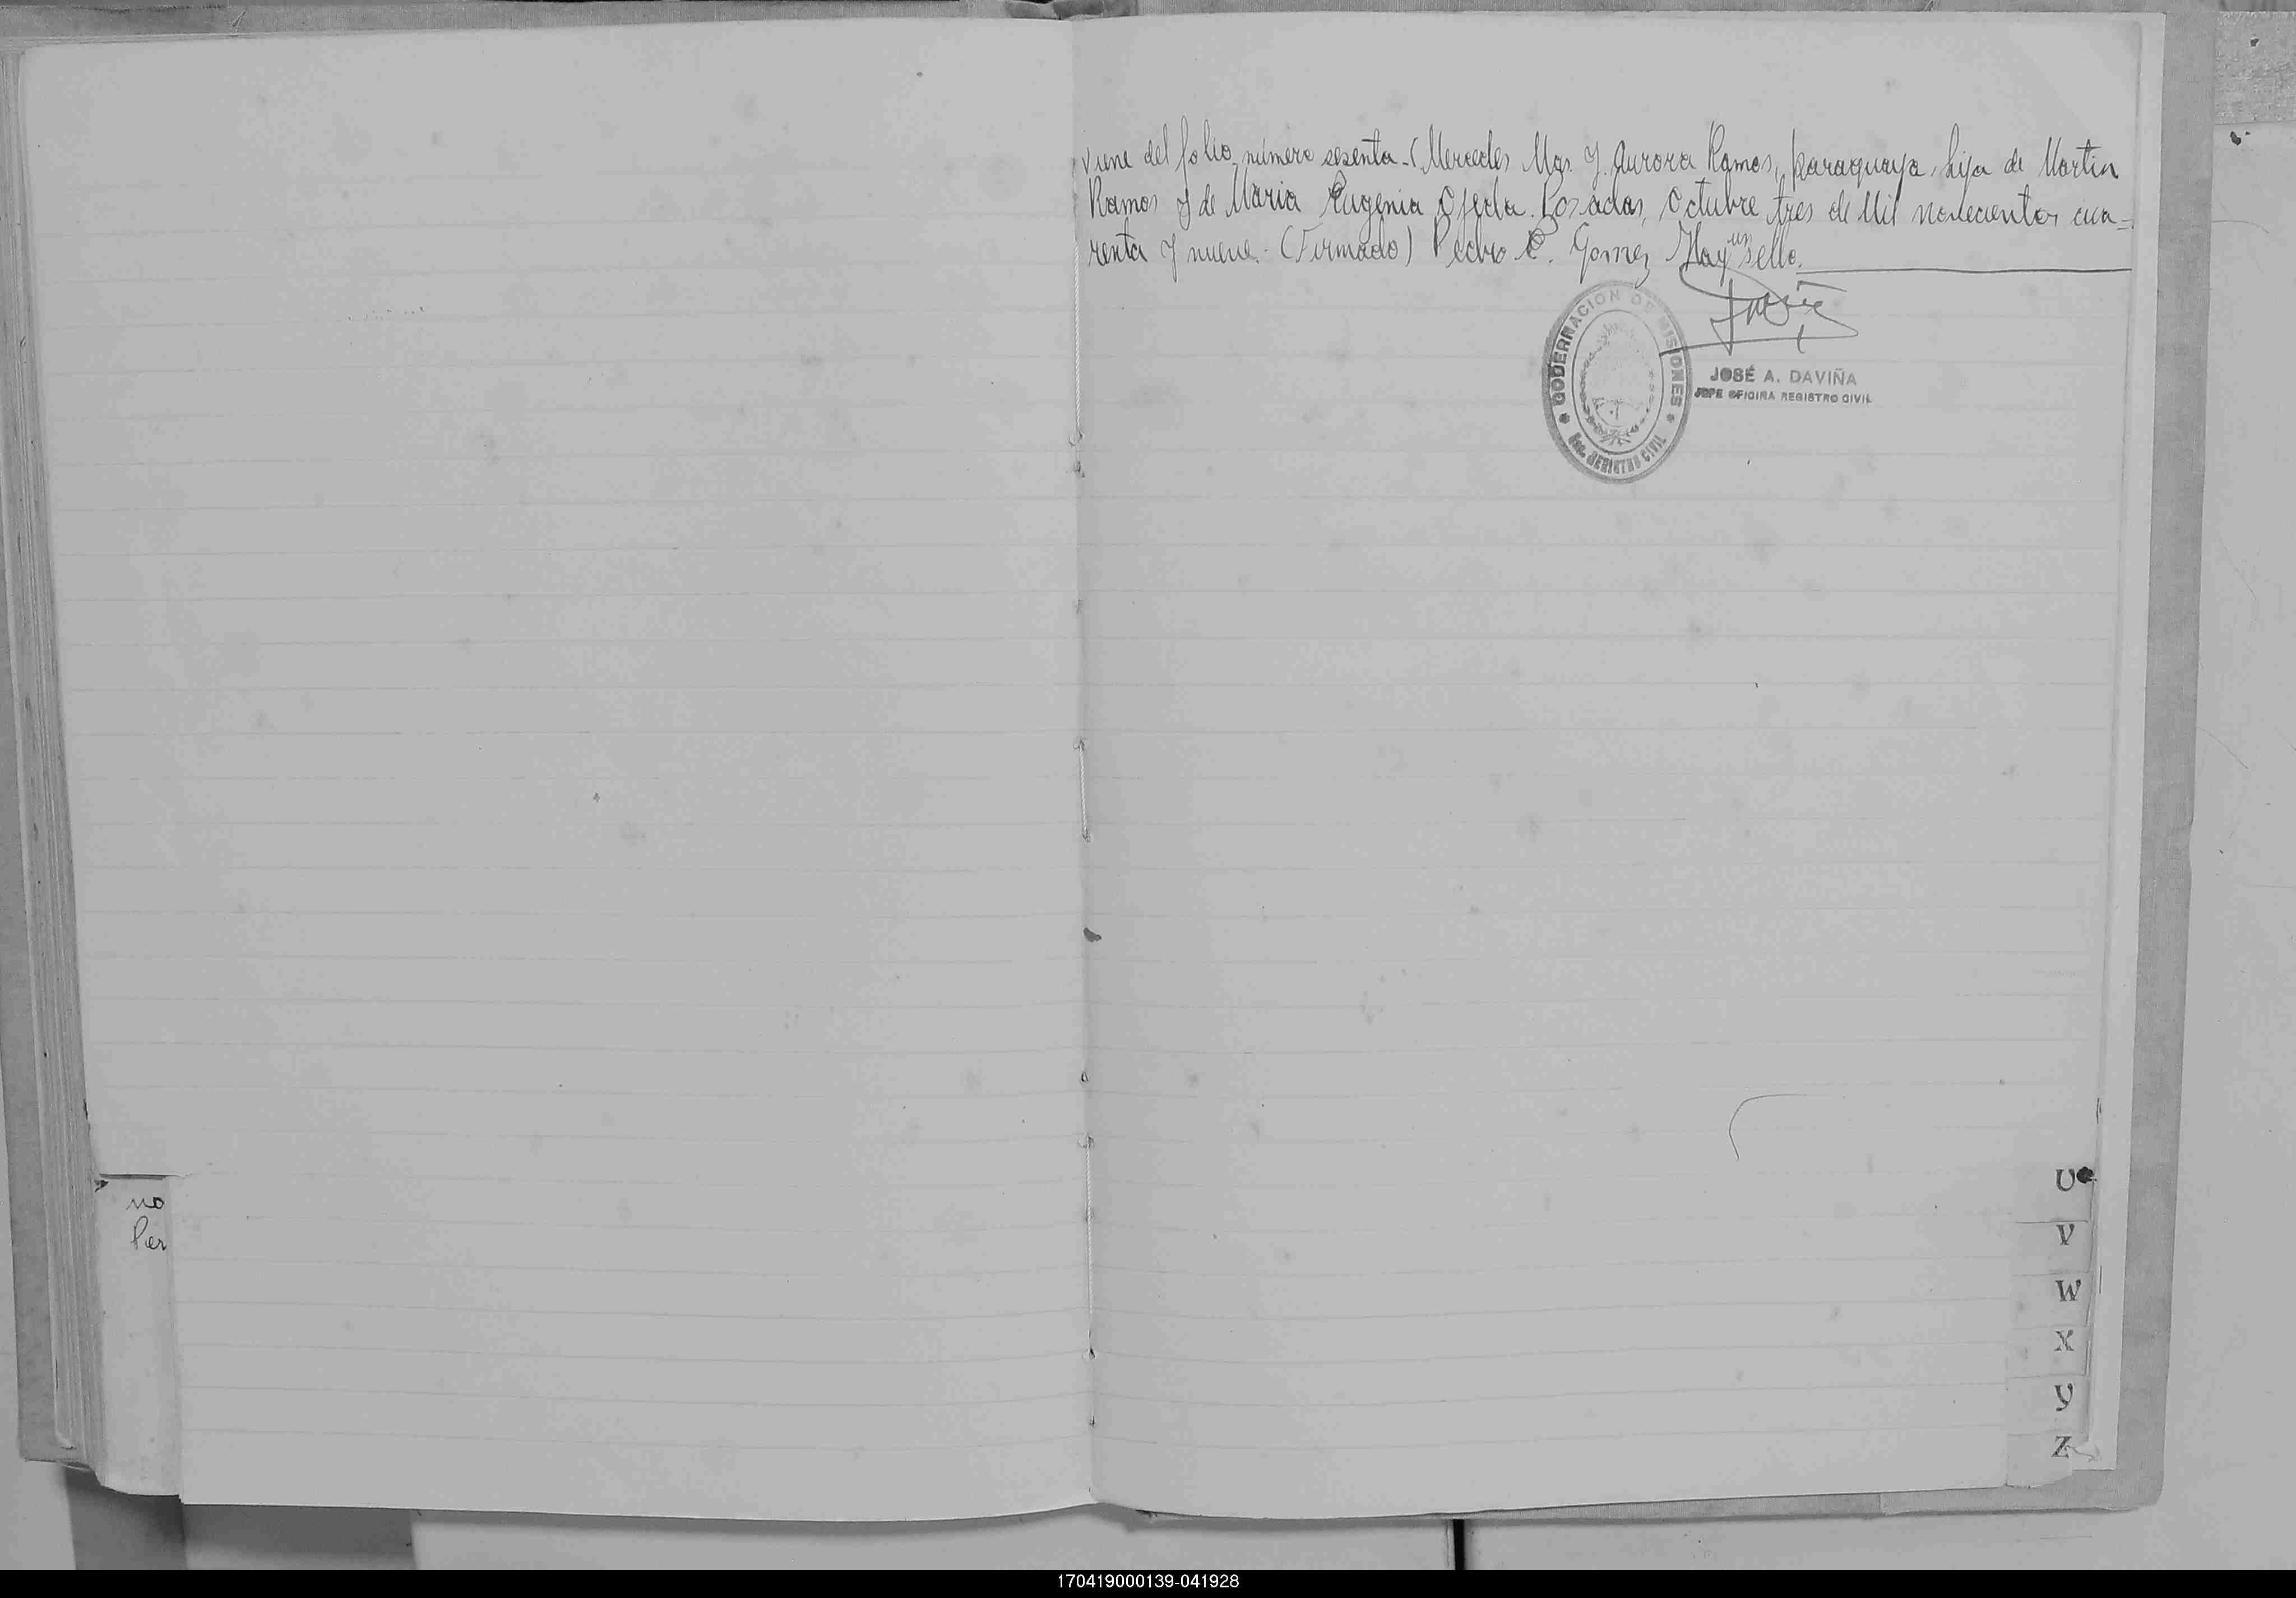 Viene del folio número sesenta-(Mercedes Mar. y Aurora Ramos, paraguaya, hija de Martin
Ramos y de Maria Eugenia Ojeda. Posadas, Octubre tres de Mil novecientos cua=
renta y nueve.- (Firmado) Pedro C. Gomez Hay un sello.
GOBERNACION DE MISIONES
REGISTRO CIVIL
JOSÉ A. DAVIÑA
JEFE OFICINA REGISTRO CIVIL
no
Per
U
V
W
X
Y
Z
170419000139-041928